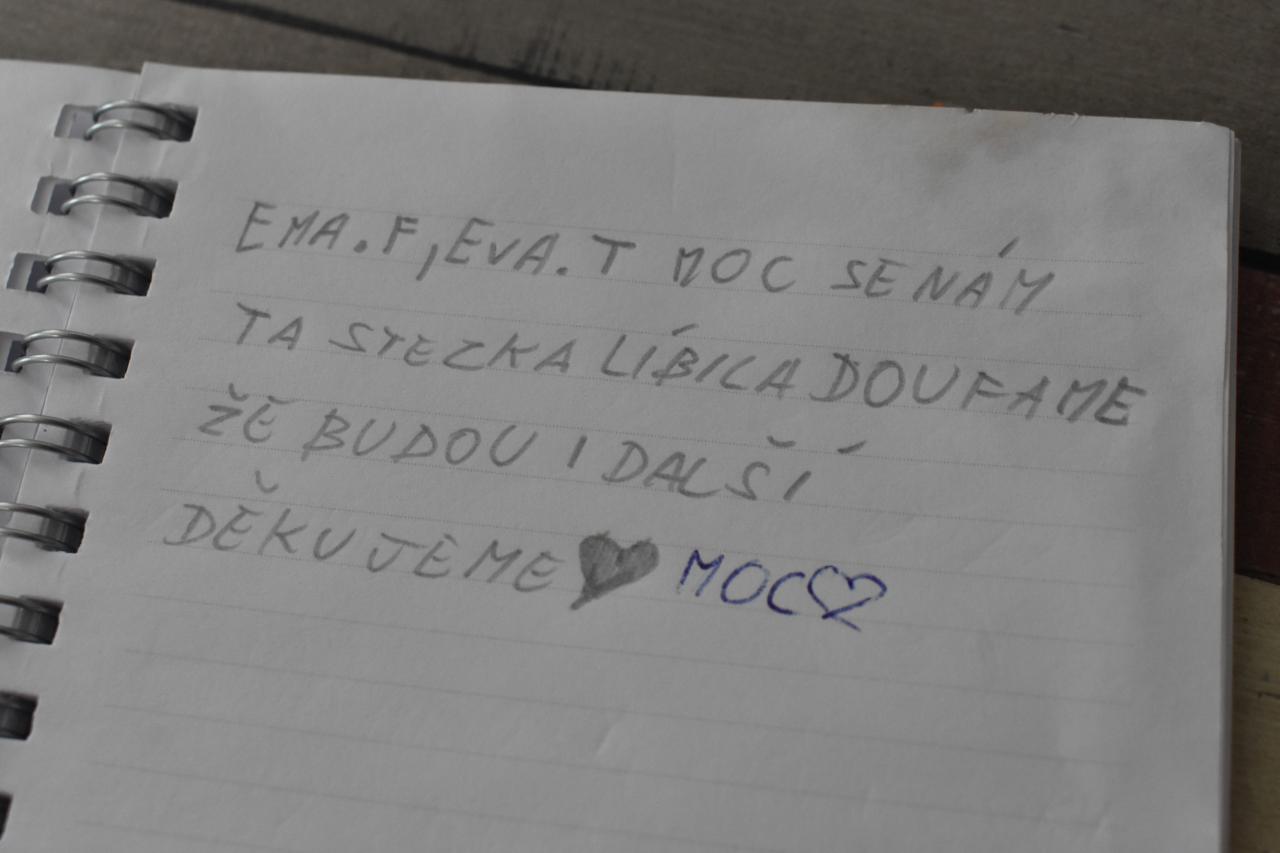 EMA.F,EVA.T MOC SE NÁM
TA STEZKA LÍBILA DOUFAME
ŽE BUDOU I DALŠÍ
DĚKUJEME♥ MOC♡